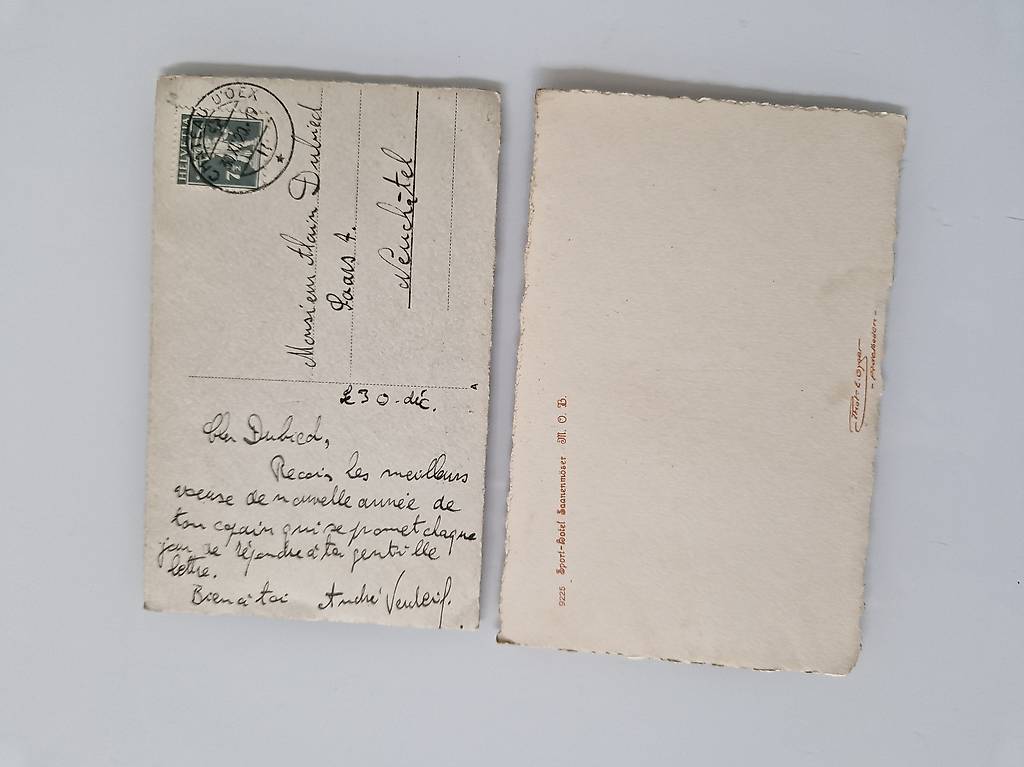 CHATEAU D'OEX
HELVETIA
7½
Monsieur Alain Dubied
Saars 4.
Neuchâtel
A
le 30 déc.
Cher Dubied,
Recois les meilleurs
voeuse de nouvelle année de
ton copain qui se promet chaque
jour de répondre à ta gentille
lettre.
Bien à toi André
9225 Sport-Hotel Saanenmöser M. O. B.
Phot. E. Gyger
- Adelboden -